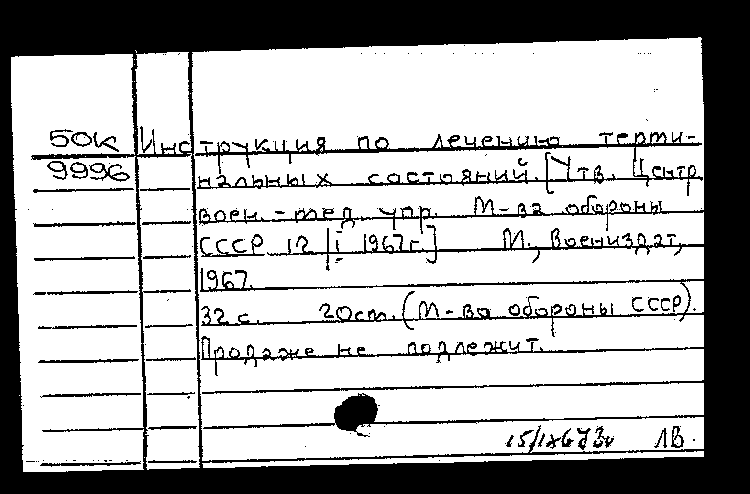 50к Инструкция по лечению терми-
9996 нальных состояний. [Утв. Центр.
воен.-мед. упр. М-ва обороны
СССР 12/I 1967г.] М., Воениздат,
1967.
32 с. 20см. (М-во обороны СССР).
Продаже не подлежит.
1В.